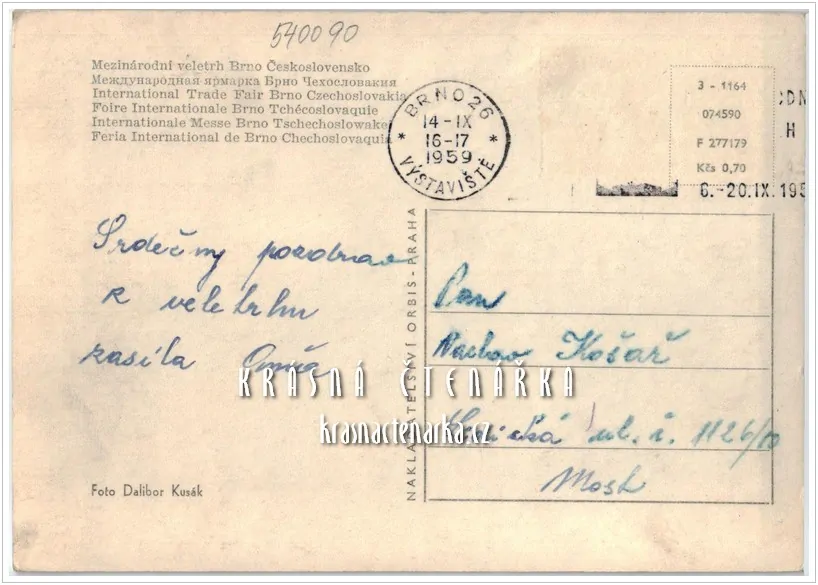 540090
Mezinárodní veletrh Brno Československo
Международная ярмарка Брно Чехословакия
International Trade Fair Brno Czechoslovakia
Foire Internationale Brno Tchécoslovaquie
Internationale Messe Brno Tschechoslowakei
Feria International de Brno Chechoslovaquia
BRNO 26
14-IX
16-17
1959
* VÝSTAVIŠTĚ *
3 - 1164
074590
F 277179
Kčs 0,70
H
6.-20.IX.195
Srdečný pozdrav
z veletrhu
zasílá
Pan
Václav Košař
ul. č. 1126/10
Most
NAKLADATELSTVÍ ORBIS - PRAHA
KRÁSNÁ ČTENÁŘKA
krasnactenarka.cz
Foto Dalibor Kusák